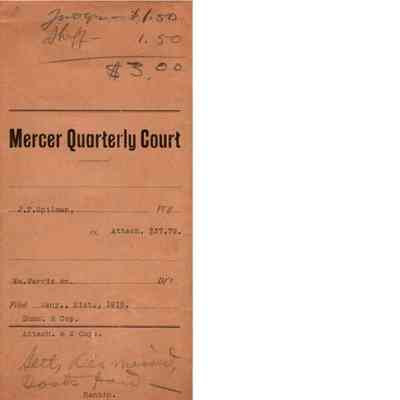 Judge — $1.50
Shff — 1.50
$3.00
Mercer Quarterly Court
J.T.Spilman, Pl'ff
vs Attach. $37.79.
Wm. Df't
Filed 21st., 1915.
Summ. & Cop.
Attach. & 2 Cop.
Settled, Dismissed,
Costs paid —
Rankin.